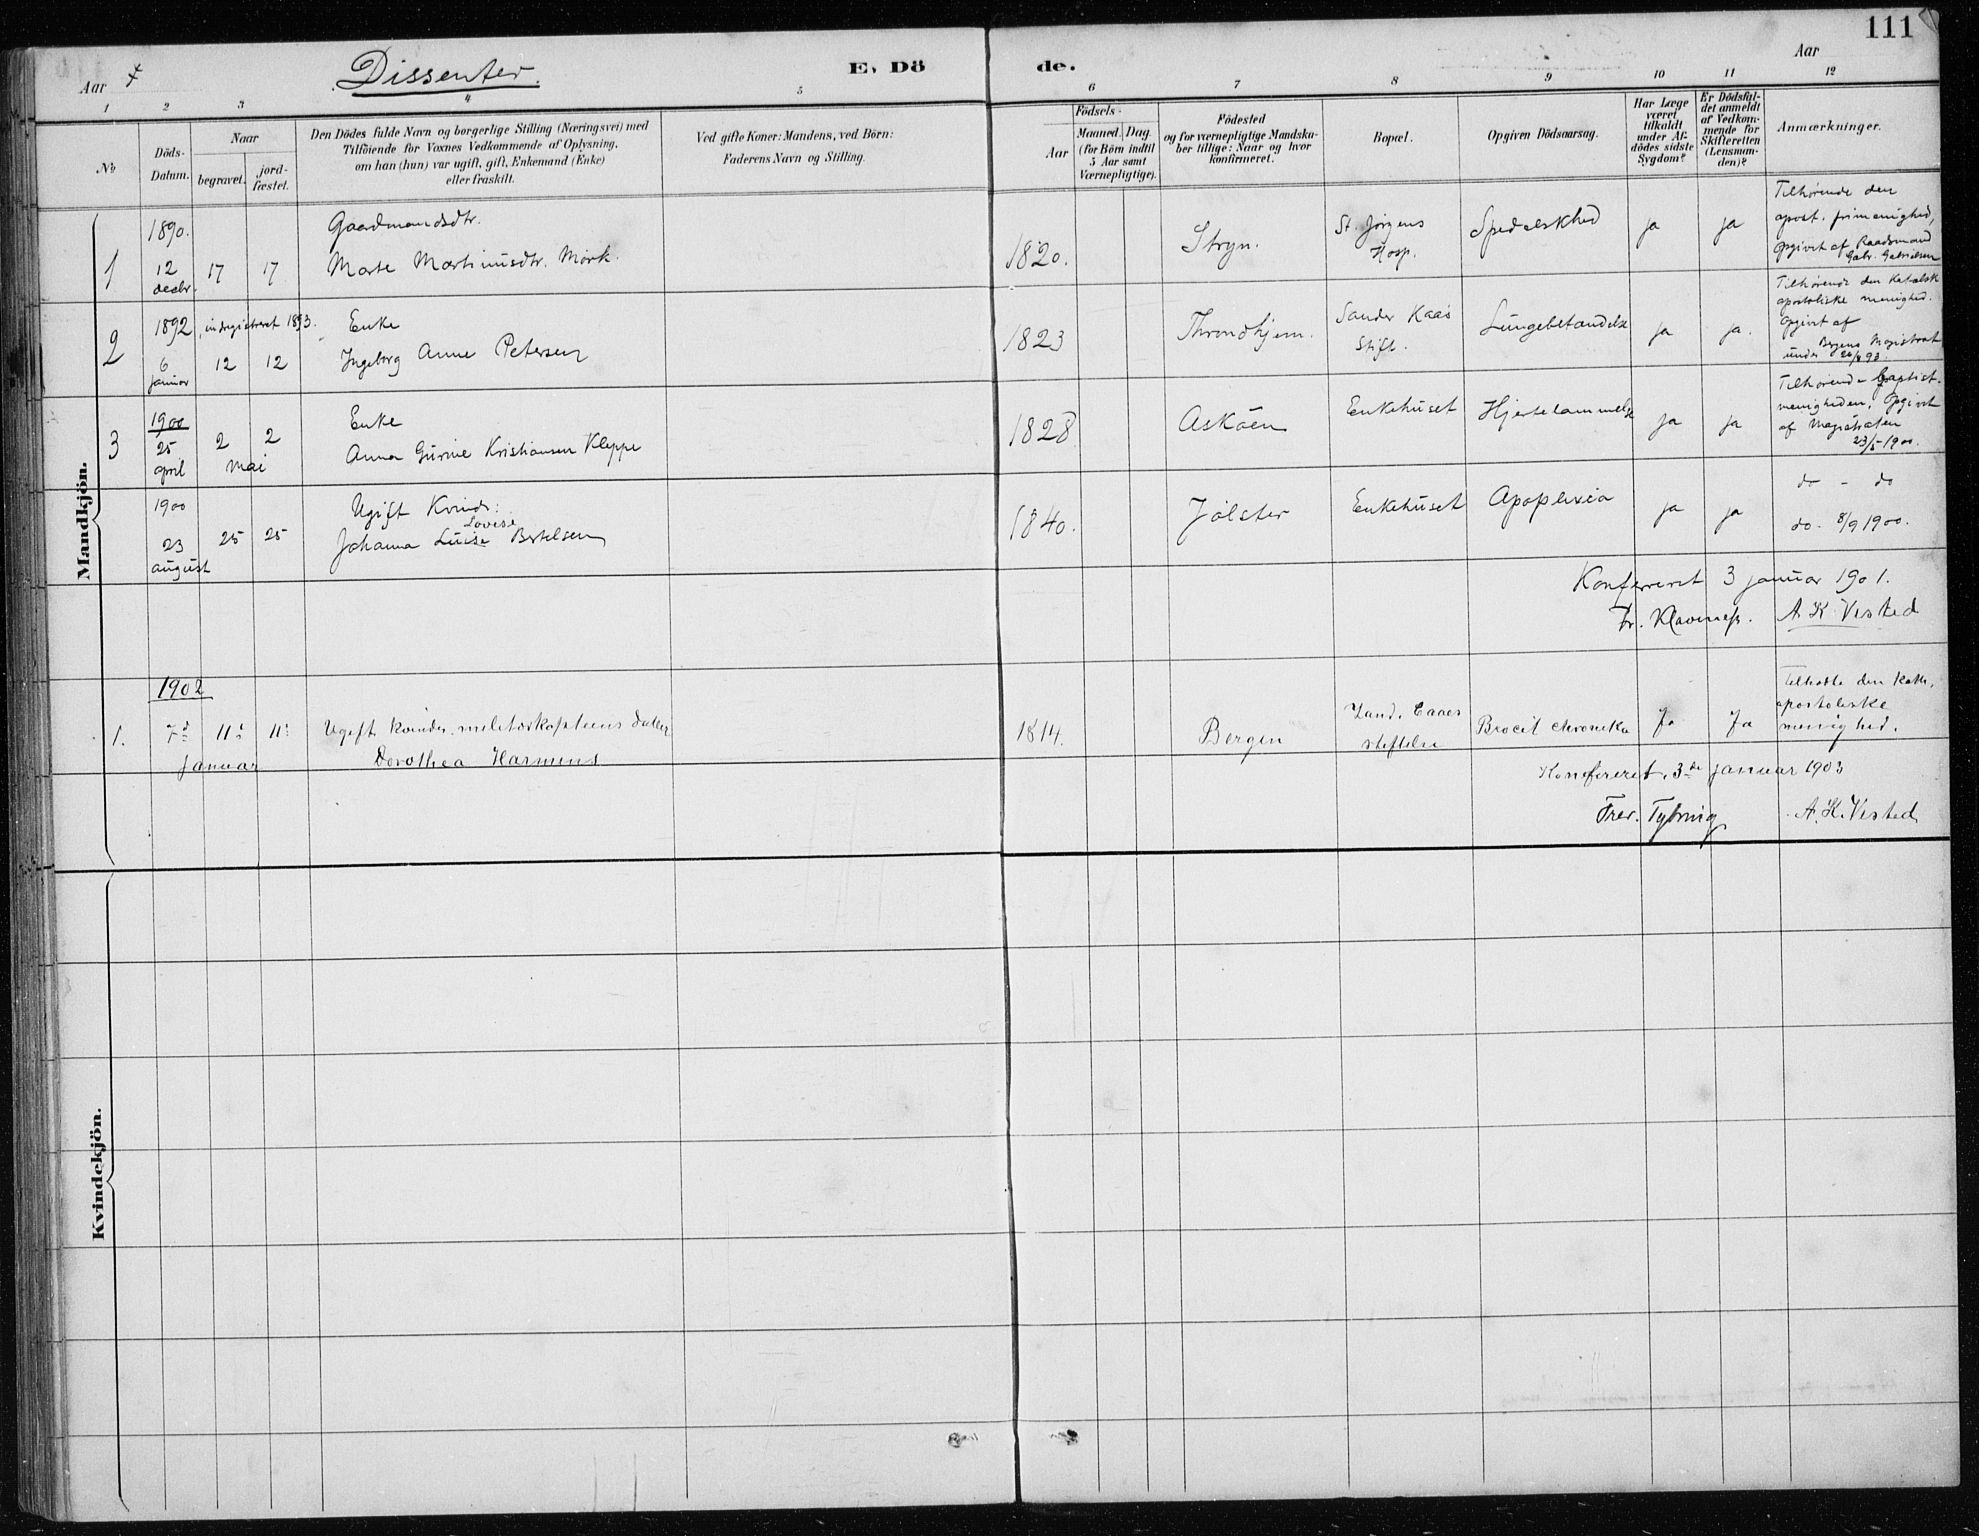 111
Aar
Dissenter.
E. Döde.
Aar
1 2 3 4 5 6 7 8 9 10 11 12
No
Döds-Datum.
Naar
begravet.
jord-fæstet.
Den Dödes fulde Navn og borgerlige Stilling (Næringsvei) med
Tilföiende for Voxnes Vedkommende af Oplysning,
om han (hun) var ugift, gift, Enkemand (Enke)
eller fraskilt.
Ved gifte Koner: Mandens, ved Börn:
Faderens Navn og Stilling.
Födsels-
Aar
Maaned. Dag.
(for Börn indtil
5 Aar samt
Værnepligtige).
Födested
og for værnepligtige Mandska-
ber tillige: Naar og hvor
konfirmeret.
Bopæl.
Opgiven Dödsaarsag.
Har Læge
været
tilkaldt
under Af-
dödes sidste
Sygdom?
Er Dödsfal-
det anmeldt
af Vedkom-
mende for
Skifteretten
(Lensman-
den)?
Anmærkninger.
Mandkjön.
1
1890.
12 decbr.
17
17
Gaardmandsdtr.
Marte Martinusdtr. Mörk.
1820.
Stryn.
St. Jörgens
Hosp.
Spedalskhed
ja
ja
Tilhörende den
apost. frimenighed,
opgivet af Raadsmand
Gabr. Gabrielsen
2
1892, indregistreret 1893.
6 januar
12
12
Enke
Ingeborg Anne Petersen
1823
Throndhjem.
Sander Kaas
Stift.
Lungebetændelse
ja
ja.
Tilhörende den Katolsk
apostoliske menighed.
Opgivet af
Bergens Magistrat
under
3
1900
25 april
2
2
mai
Enke
Anna Gurine Kristiansen Kleppe
1828
Asköen
Enkehuset
Hjertelammelse
ja
ja
Tilhörende Baptist-
menigheden, Opgivet
af Magistraten
23/5 1900.
1900
23 august
25
25
Ugift Kvinde:
Lovise
Johanna Luise Bertelsen
1840.
Jölster
Enkehuset
Apoplexia
ja
ja
do - do
do. 8/9 1900.
Konfereret 3 januar 1901.
Fr. Klaveness. A. K. Vested
1902
1.
7de
11te
11te
Januar
Ugift kvinde. militærkapteins datter
Dorothea Harmens
1814.
Bergen
Zand. Caaes
stiftelse
Brocit chronika
Ja
Ja
Tilhørte den Kath.
apostoliske
menighed.
Konfereret, 3de januar 1903
Frer. Tybring A. K. Vested
Kvindekjön.